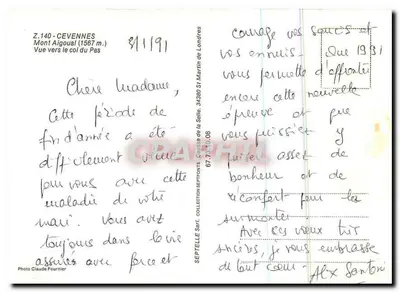 Z.140 - CEVENNES
Mont Aigoual (1567 m.)
Vue vers le col du Pas
8/1/91
Chère Madame,
Cette période de
fin d'année a été
difficilement vécue
pour vous avec cette
maladie de votre
mari. Vous avez
toujours dans la vie
assurée avec force et
Photo Claude Fournier
SEPTELLE Sarl. COLLECTION SERPOINTS de la Selle. 34380 St Martin de Londres
courage vos soucis et
vos ennuis. Que 1991
vous permette d'affronter
encore cette nouvelle
épreuve et que
vous puissiez y
puiser assez de
bonheur et de
réconfort pour la
surmonter.
Avec ces vœux très
sincères, je vous embrasse
de tout cœur. Alx Santoni